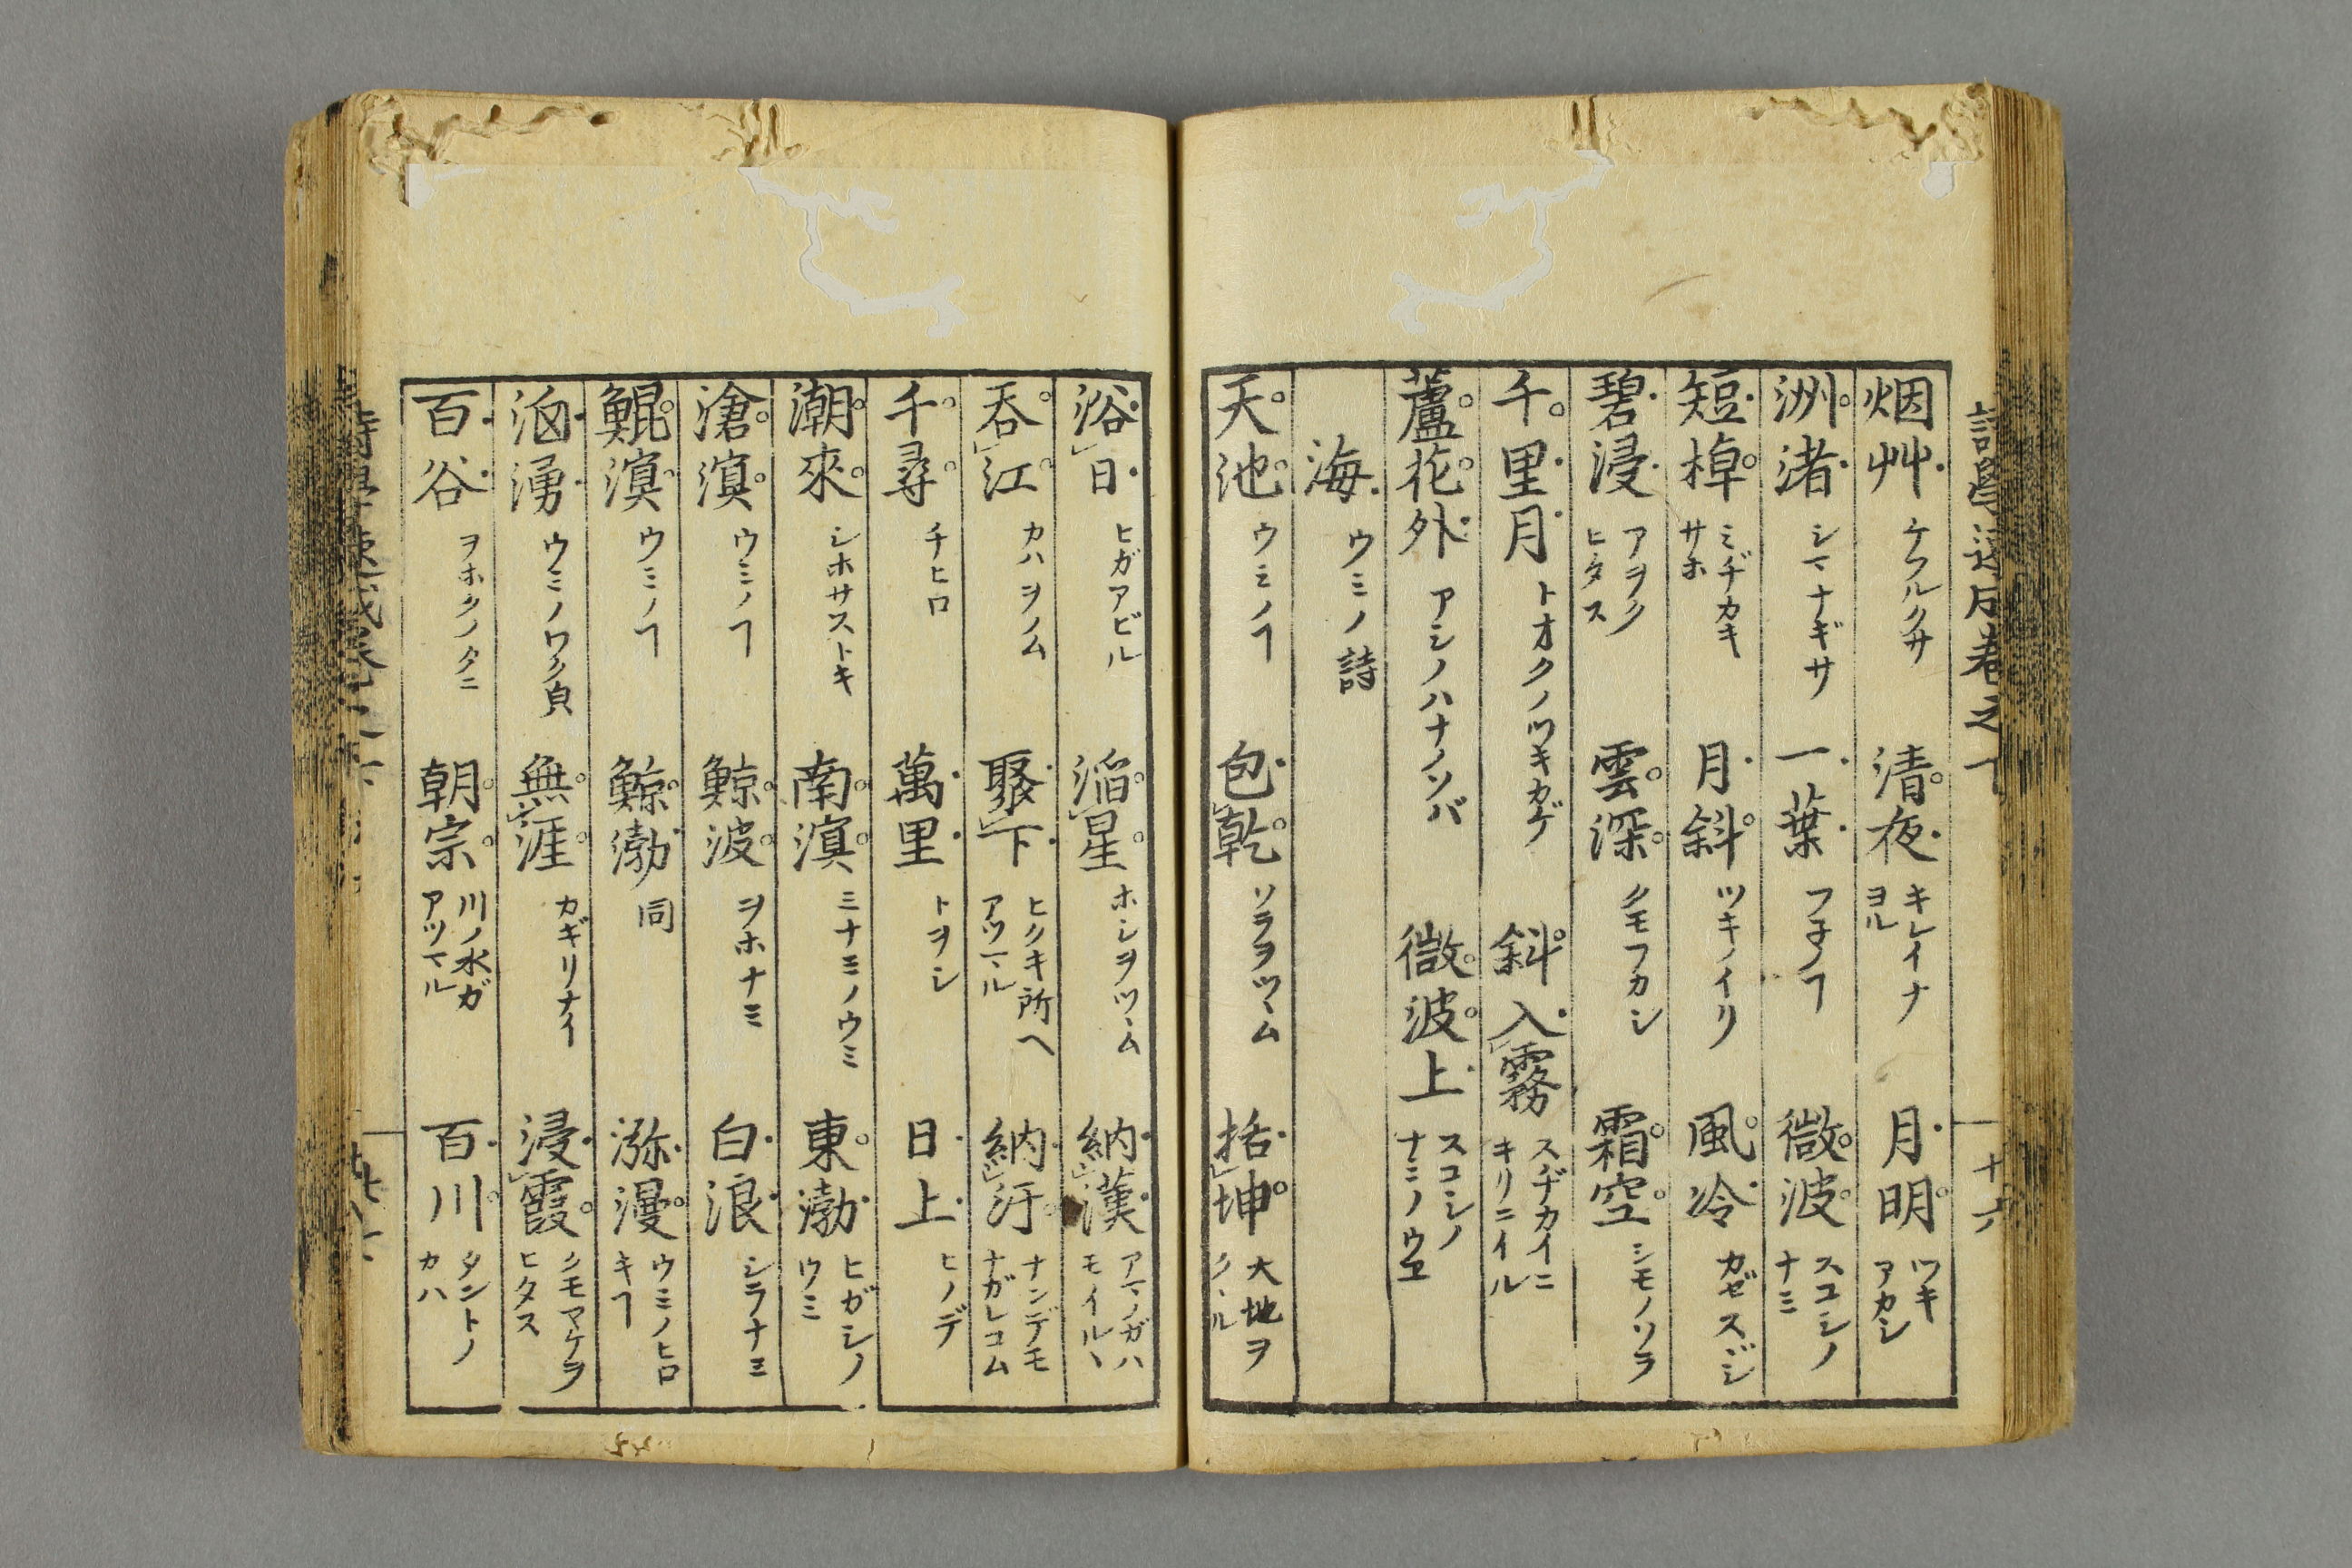 烟艸 ケフルクサ 清夜 キレイナ ヨル 月明 ツキ アカシ
洲渚 シマナギサ 一葉 フネノヿ 微波 スコシノ ナミ
短棹 ミヂカキ サホ 月斜 ツキノイリ 風冷 カゼスヾシ
碧浸 アヲク ヒタス 雲深 クモフカシ 霜空 シモノソラ
千里月 トオクノツキカゲ 斜入霧 スヂカイニ キリニイル
蘆花外 アシノハナノソバ 微波上 スコシノ ナミノウヱ
海 ウミノ詩
天池 ウミノヿ 包乾 ソラヲツヽム 括坤 大地ヲ クヽル
浴日 ヒガアビル 滔星 ホシヲツヽム 納漢 アマノガハ モイルヽ
呑江 カハヲノム 聚下 ヒクキ所ヘ アツマル 納汙 ナンデモ ナガレコム
千尋 チヒロ 萬里 トヲシ 日上 ヒノデ
潮來 シホサストキ 南溟 ミナミノウミ 東渤 ヒガシノ ウミ
滄溟 ウミノヿ 鯨波 ヲホナミ 白浪 シラナミ
鯤溟 ウミノヿ 鯨渤 同 瀰漫 ウミノヒロ キヿ
洶湧 ウミノワク皃 無涯 カギリナイ 浸霞 クモマケヲ ヒタス
百谷 ヲホクノタニ 朝宗 川ノ水ガ アツマル 百川 タントノ カハ